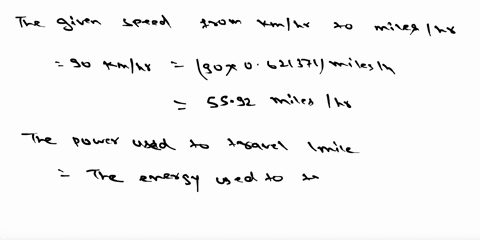 The given speed from km/hr to miles/hr
= 90 km/hr = (90 × 0.621371) miles/h
= 55.92 miles/hr
The power used to travel 1 mile
= The energy used to